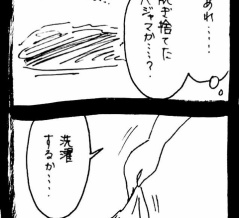 あれ……
脱ぎ捨てた
パジャマか…?
洗濯
するか……